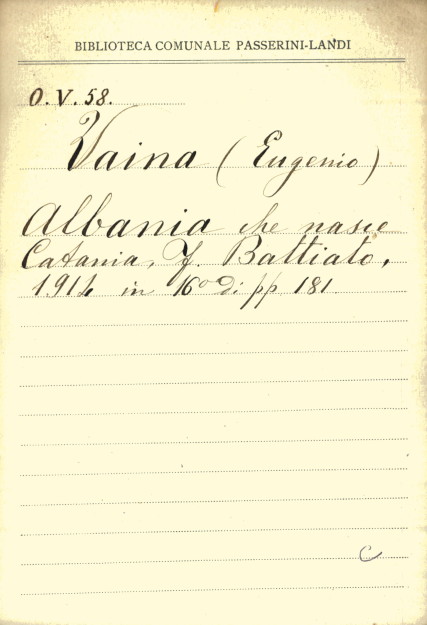 BIBLIOTECA COMUNALE PASSERINI-LANDI
O.V.58.
Vaina (Eugenio)
Albania che nasce
Catania, F. Battiato,
1914 in 16º di pp 181
C